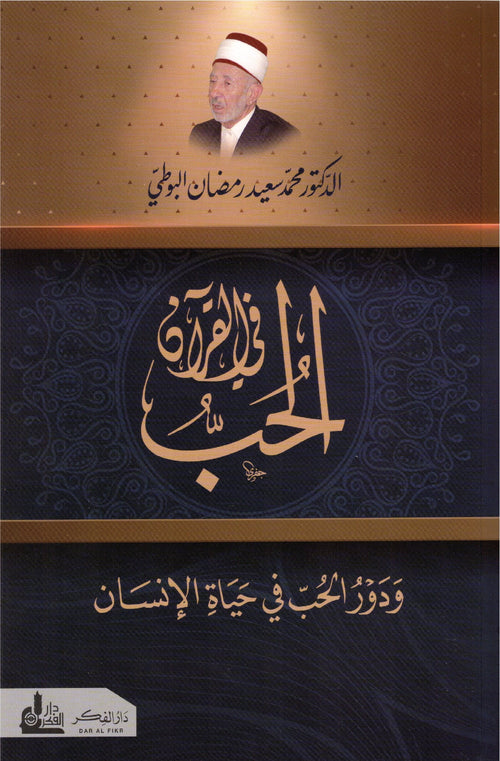 الدكتور محمّد سعيد رمضان البوطيّ
الحُبُّ في القرآن
وَدَوْرُ الحُبّ في حَيَاةِ الإنسَان
دار الفكر
دَارُ الفِكر
DAR AL FIKR